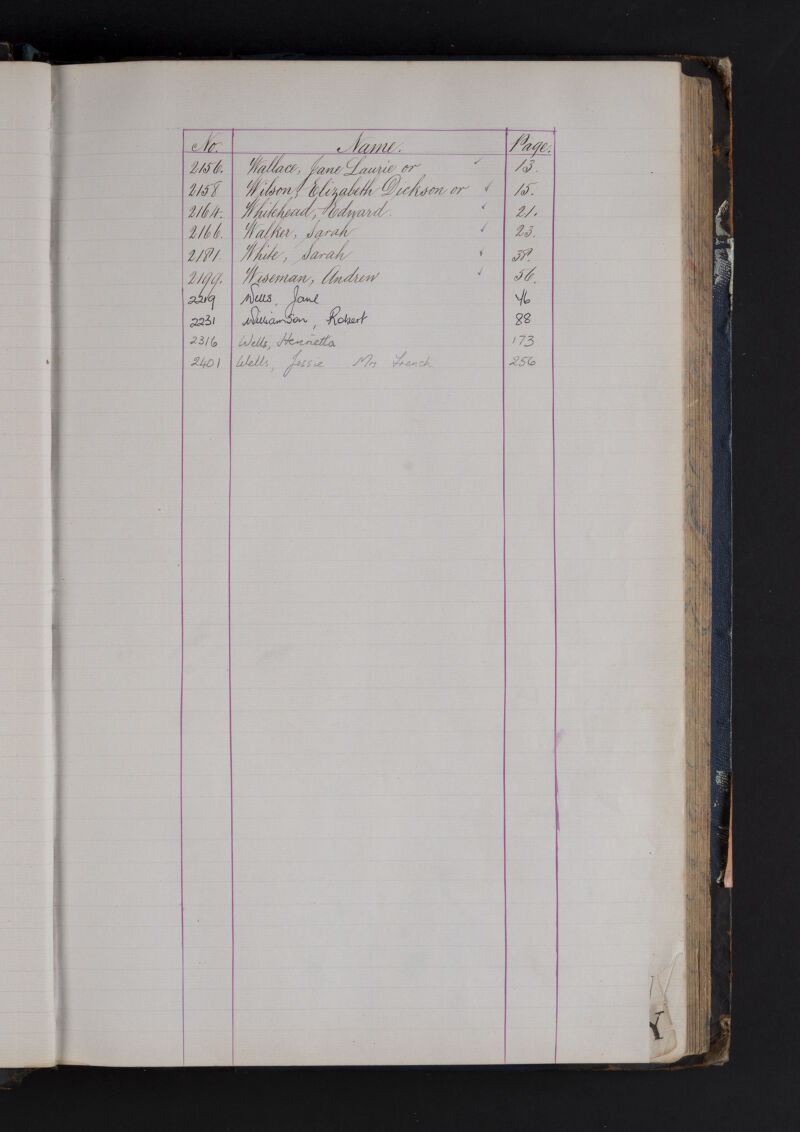 No. Name. Page.
2156. Wallace, Jane Laurie or ✓ 13.
2158 Wilson, Elizabeth Dickson or ✓ 15.
2164. Whitehead, Edward. ✓ 21.
2166. Walker, Sarah ✓ 23.
2181. White, Sarah ✓ 38.
2199. Wiseman, Andrew ✓ 56.
2219 Wells, Jane 76
2231 Williamson, Robert 88
2316 Wells, Henrietta 173
2401 Wells, Jessie Mrs French 256
W
Y